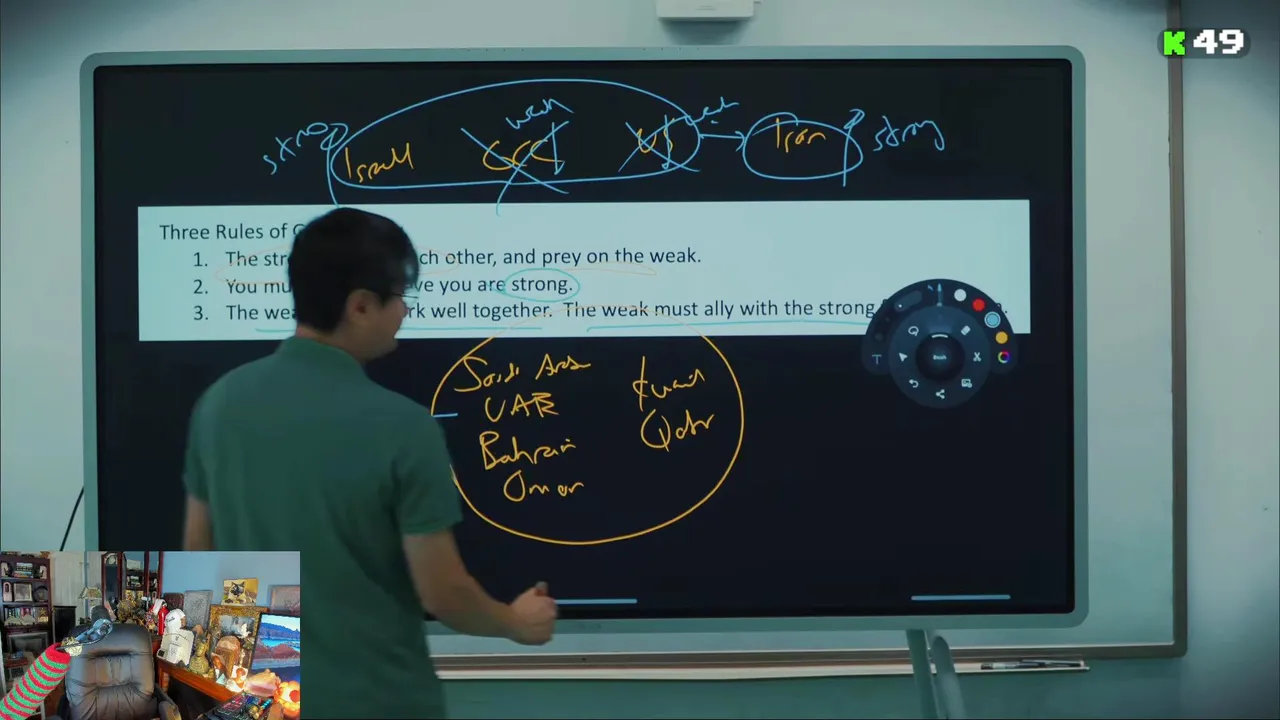 K 49
weak
strong Israel GCC US weak Iran strong
Three Rules of
1. The ch other, and prey on the weak.
2. You ve you are strong.
3. The rk well together. The weak must ally with the strong
Saudi Kuwait
UAE Qatar
Bahrain
Oman